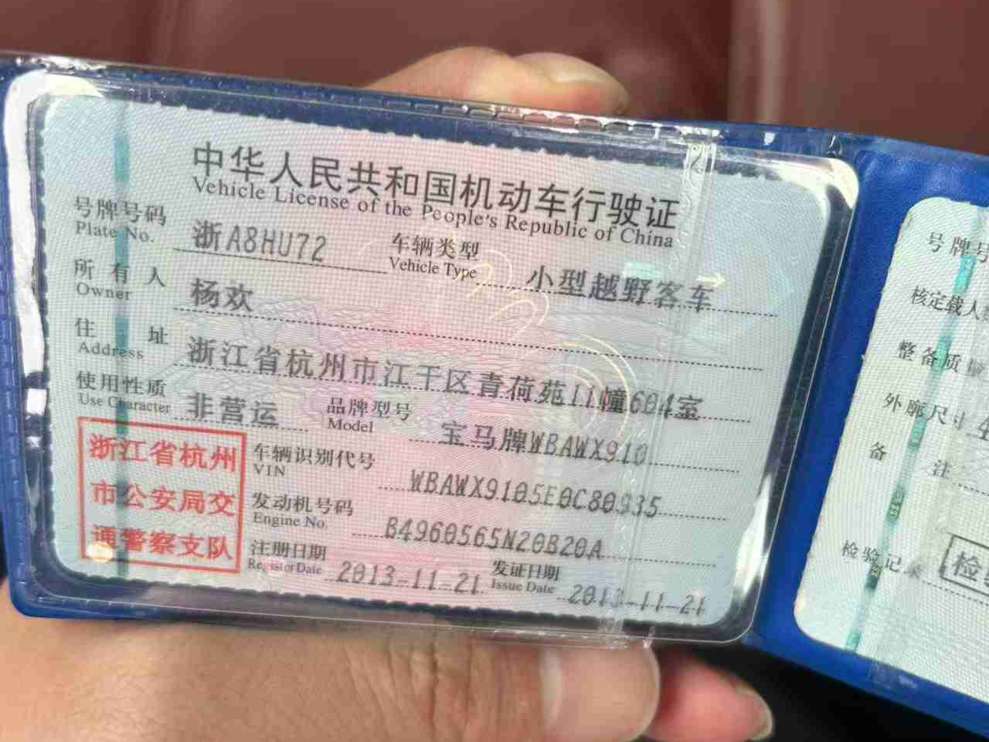 中华人民共和国机动车行驶证
Vehicle License of the People's Republic of China
号牌号码 浙A8HU72 车辆类型 小型越野客车
Plate No. Vehicle Type
所有人 杨欢
Owner
住址 浙江省杭州市江干区青荷苑11幢604室
Address
使用性质 非营运 品牌型号 宝马牌WBAWX910
Use Character Model
浙江省杭州
市公安局交
通警察支队
车辆识别代号 WBAWX9105E0C80935
VIN
发动机号码 B4960565N20B20A
Engine No.
注册日期 2013-11-21 发证日期 2013-11-21
Register Date Issue Date
号牌号
核定载人
整备质量
外廓尺寸 4
备注
检验记录 检